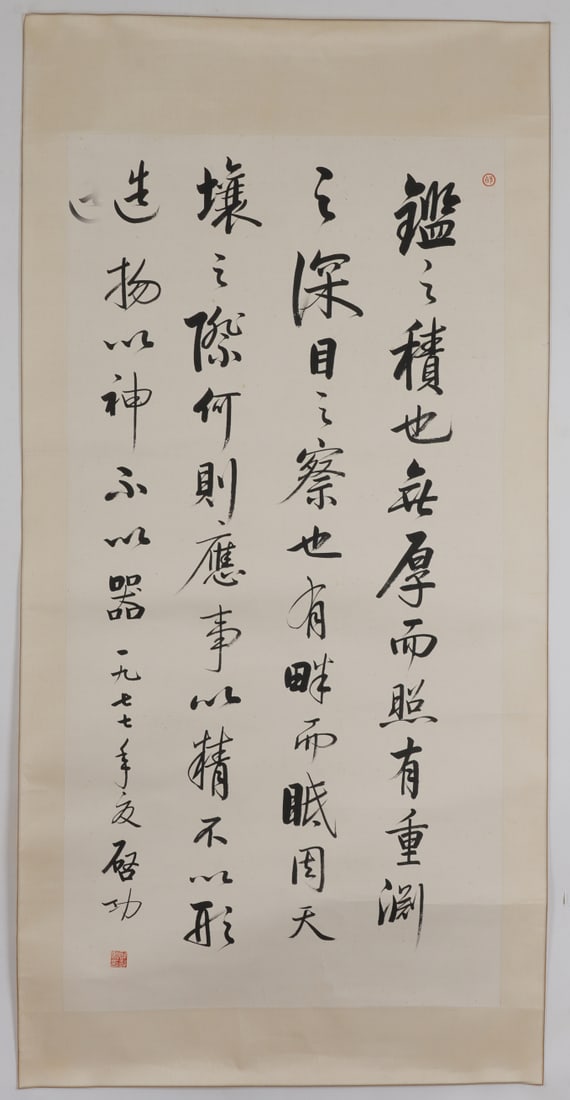 鑑之積也無厚而照有重淵
之深目之察也有畔而眡周天
壤之際何則應事以精不以形
造物以神不以器一九七七年夏啓功